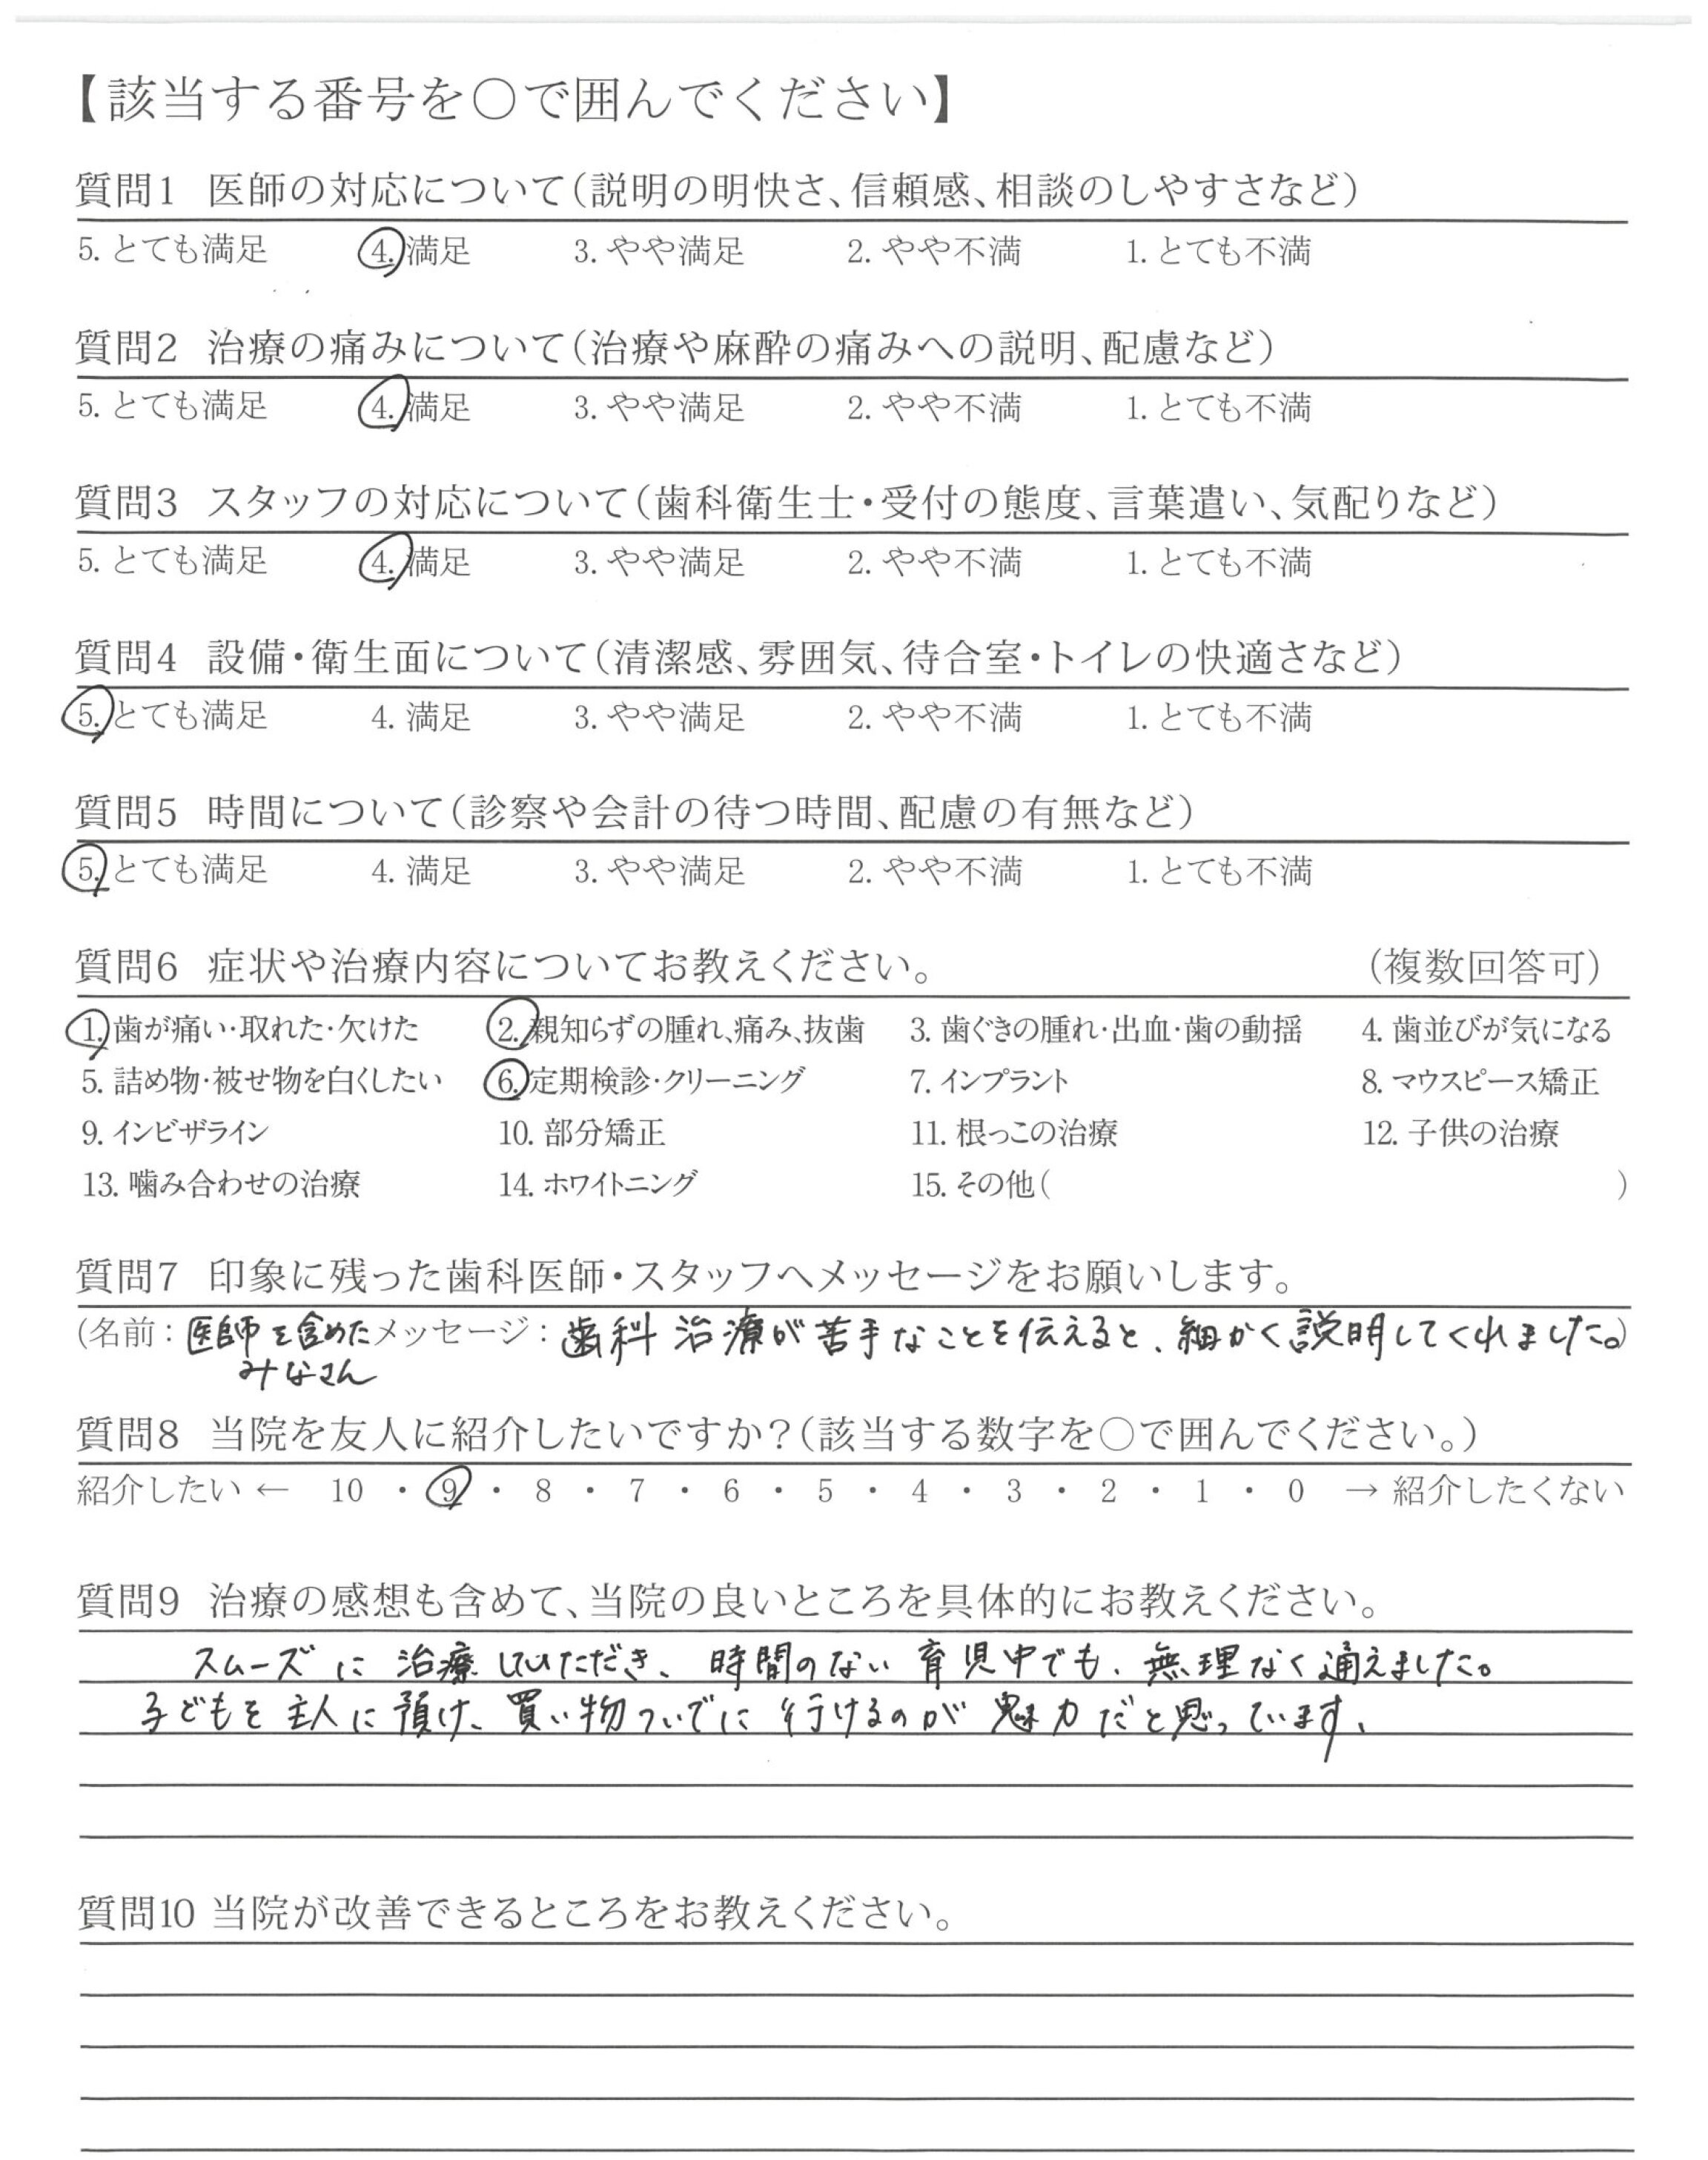 【該当する番号を○で囲んでください】
質問1 医師の対応について(説明の明快さ、信頼感、相談のしやすさなど)
5. とても満足 4. 満足 3. やや満足 2. やや不満 1. とても不満
質問2 治療の痛みについて(治療や麻酔の痛みへの説明、配慮など)
5. とても満足 4. 満足 3. やや満足 2. やや不満 1. とても不満
質問3 スタッフの対応について(歯科衛生士・受付の態度、言葉遣い、気配りなど)
5. とても満足 4. 満足 3. やや満足 2. やや不満 1. とても不満
質問4 設備・衛生面について(清潔感、雰囲気、待合室・トイレの快適さなど)
5. とても満足 4. 満足 3. やや満足 2. やや不満 1. とても不満
質問5 時間について(診察や会計の待つ時間、配慮の有無など)
5. とても満足 4. 満足 3. やや満足 2. やや不満 1. とても不満
質問6 症状や治療内容についてお教えください。 (複数回答可)
1. 歯が痛い・取れた・欠けた 2. 親知らずの腫れ、痛み、抜歯 3. 歯ぐきの腫れ・出血・歯の動揺 4. 歯並びが気になる
5. 詰め物・被せ物を白くしたい 6. 定期検診・クリーニング 7. インプラント 8. マウスピース矯正
9. インビザライン 10. 部分矯正 11. 根っこの治療 12. 子供の治療
13. 噛み合わせの治療 14. ホワイトニング 15. その他( )
質問7 印象に残った歯科医師・スタッフへメッセージをお願いします。
(名前：医師を含めた メッセージ：歯科治療が苦手なことを伝えると、細かく説明してくれました。)
みなさん
質問8 当院を友人に紹介したいですか？(該当する数字を○で囲んでください。)
紹介したい ← 10 ・ 9 ・ 8 ・ 7 ・ 6 ・ 5 ・ 4 ・ 3 ・ 2 ・ 1 ・ 0 → 紹介したくない
質問9 治療の感想も含めて、当院の良いところを具体的にお教えください。
スムーズに治療していただき、時間のない育児中でも、無理なく通えました。
子どもを主人に預け、買い物ついでに行けるのが魅力だと思っています、
質問10 当院が改善できるところをお教えください。